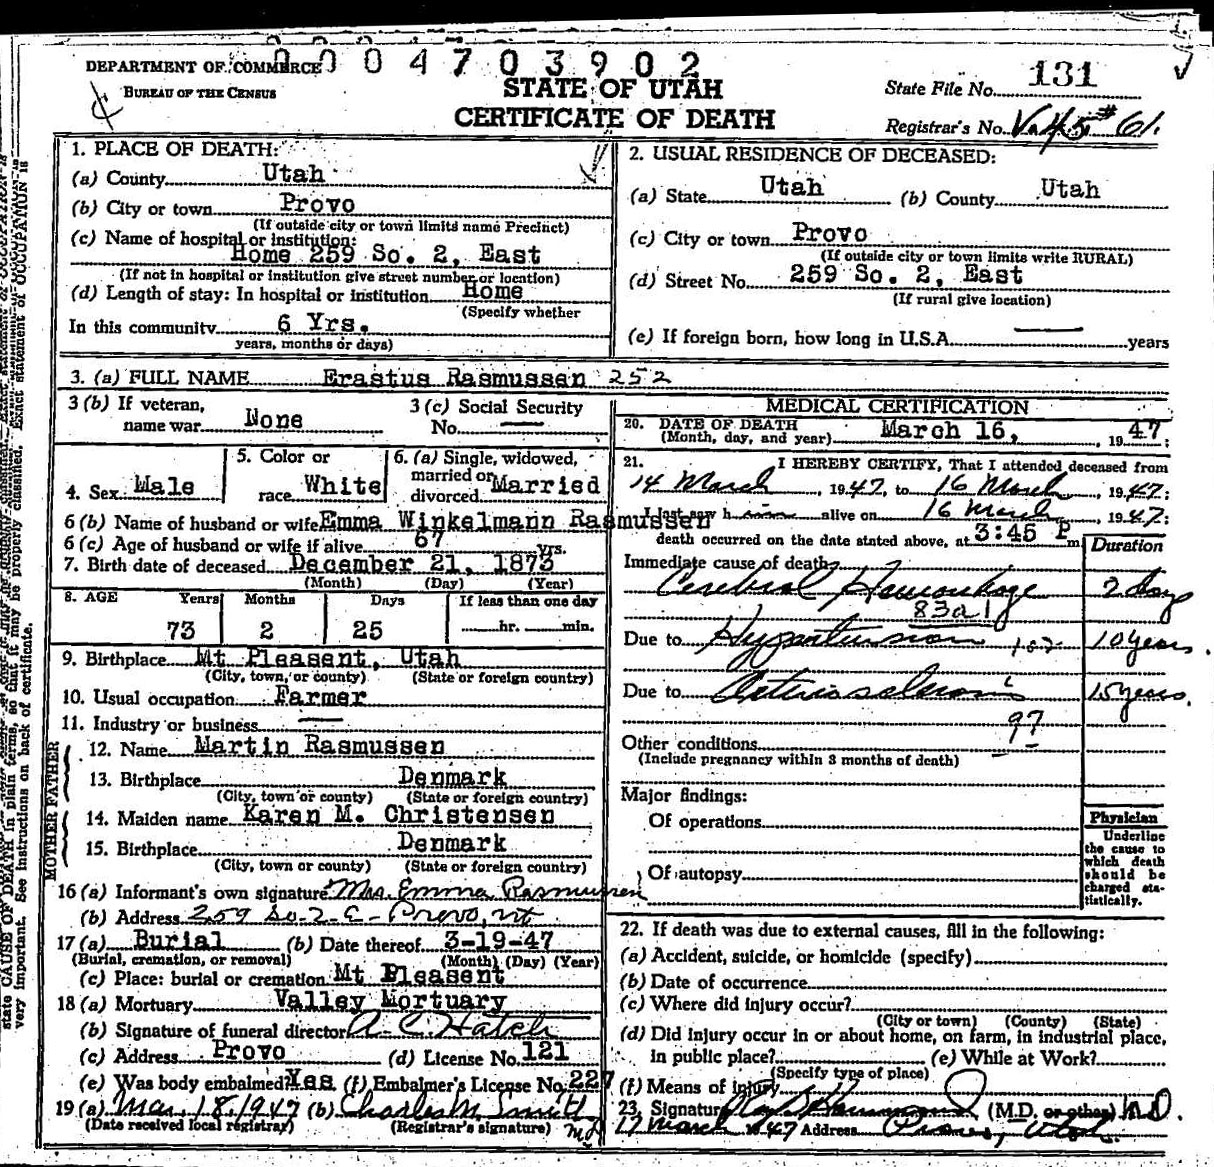 0004703902
DEPARTMENT OF COMMERCE
BUREAU OF THE CENSUS
STATE OF UTAH
CERTIFICATE OF DEATH
State File No. 131
Registrar's No. # 61.
1. PLACE OF DEATH:
(a) County Utah
(b) City or town Provo
(If outside city or town limits name Precinct)
(c) Name of hospital or institution:
Home 259 So. 2, East
(If not in hospital or institution give street number or location)
(d) Length of stay: In hospital or institution Home
(Specify whether
In this community 6 Yrs.
years, months or days)
2. USUAL RESIDENCE OF DECEASED:
(a) State Utah (b) County Utah
(c) City or town Provo
(If outside city or town limits write RURAL)
(d) Street No. 259 So. 2, East
(If rural give location)
(e) If foreign born, how long in U.S.A. years
3. (a) FULL NAME Erastus Rasmussen 252
3 (b) If veteran, name war None
3 (c) Social Security No.
4. Sex Male
5. Color or race White
6. (a) Single, widowed, married or divorced Married
6 (b) Name of husband or wife Emma Winkelmann Rasmussen
6 (c) Age of husband or wife if alive 67 yrs.
7. Birth date of deceased December 21, 1873
(Month) (Day) (Year)
8. AGE Years Months Days If less than one day
73 2 25 hr. min.
9. Birthplace Mt Pleasent, Utah
(City, town, or county) (State or foreign country)
10. Usual occupation Farmer
11. Industry or business
FATHER
12. Name Martin Rasmussen
13. Birthplace Denmark
(City, town or county) (State or foreign country)
MOTHER
14. Maiden name Karen M. Christensen
15. Birthplace Denmark
(City, town or county) (State or foreign country)
16 (a) Informant's own signature Mrs. Emma Rasmussen
(b) Address 259 So-2-E-Provo, Ut
17 (a) Burial (b) Date thereof 3-19-47
(Burial, cremation, or removal) (Month) (Day) (Year)
(c) Place: burial or cremation Mt Pleasent
18 (a) Mortuary Valley Mortuary
(b) Signature of funeral director A. C. Hatch
(c) Address Provo (d) License No. 121
(e) Was body embalmed? Yes (f) Embalmer's License No. 227
19 (a) Mar. 18, 1947 (b) Charles M. Smith
(Date received local registrar) (Registrar's signature)
MEDICAL CERTIFICATION
20. DATE OF DEATH
(Month, day, and year) March 16, , 1947;
21. I HEREBY CERTIFY, That I attended deceased from
14 March, 1947, to 16 March, 1947;
I last saw him alive on 16 March, 1947;
death occurred on the date stated above, at 3:45 P m
Duration
Immediate cause of death
Cerebral Hemorrhage 2 days
83a1
Due to Hypertension 102 10 years.
Due to Arteriosclerosis 15 years.
97
Other conditions
(Include pregnancy within 3 months of death)
Major findings:
Of operations
Of autopsy
Physician
Underline
the cause to
which death
should be
charged sta-
tistically.
22. If death was due to external causes, fill in the following:
(a) Accident, suicide, or homicide (specify)
(b) Date of occurrence
(c) Where did injury occur?
(City or town) (County) (State)
(d) Did injury occur in or about home, on farm, in industrial place,
in public place? (e) While at Work?
(Specify type of place)
(f) Means of injury
23. Signature (M.D. or other) M.D.
17 March 1947 Address Provo, Utah.
state CAUSE OF DEATH in plain terms, so that it may be properly classified. Exact statement of OCCUPATION is
very important. See instructions on back of certificate.